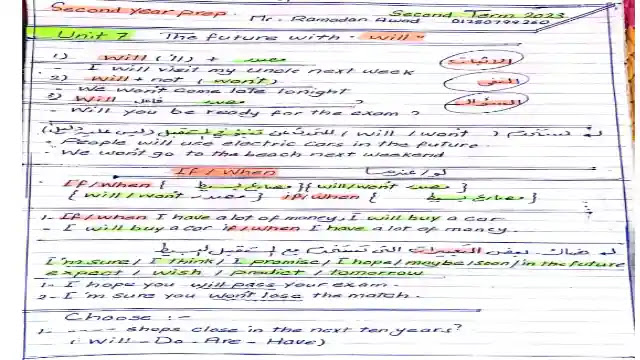 Second year prep. Second Term 2023
Mr. Ramadan Awad 01280799260
Unit 7 The future with "will"
1) will ('ll) + مصدر الاثبات
- I will visit my uncle next week
2) will + not (won't) النفى
- We won't come late tonight
3) Will فاعل مصدر ? السؤال
- Will you be ready for the exam?
(will / won't)
- People will use electric cars in the future.
- We won't go to the beach next weekend
If / When لو / عندما
If / When { مضارع بسيط } { will / won't مصدر }
{ will / won't مصدر } if / when { مضارع بسيط }
1- If / when I have a lot of money, I will buy a car
- I will buy a car if / when I have a lot of money.
هناك بعض التعبيرات التى تستخدم مع المستقبل البسيط
I'm sure / I think / I promise / I hope / maybe / soon / in the future
expect / wish / predict / tomorrow
1- I hope you will pass your exam.
2- I'm sure you won't lose the match.
Choose :-
1- ---- shops close in the next ten years?
(Will - Do - Are - Have)